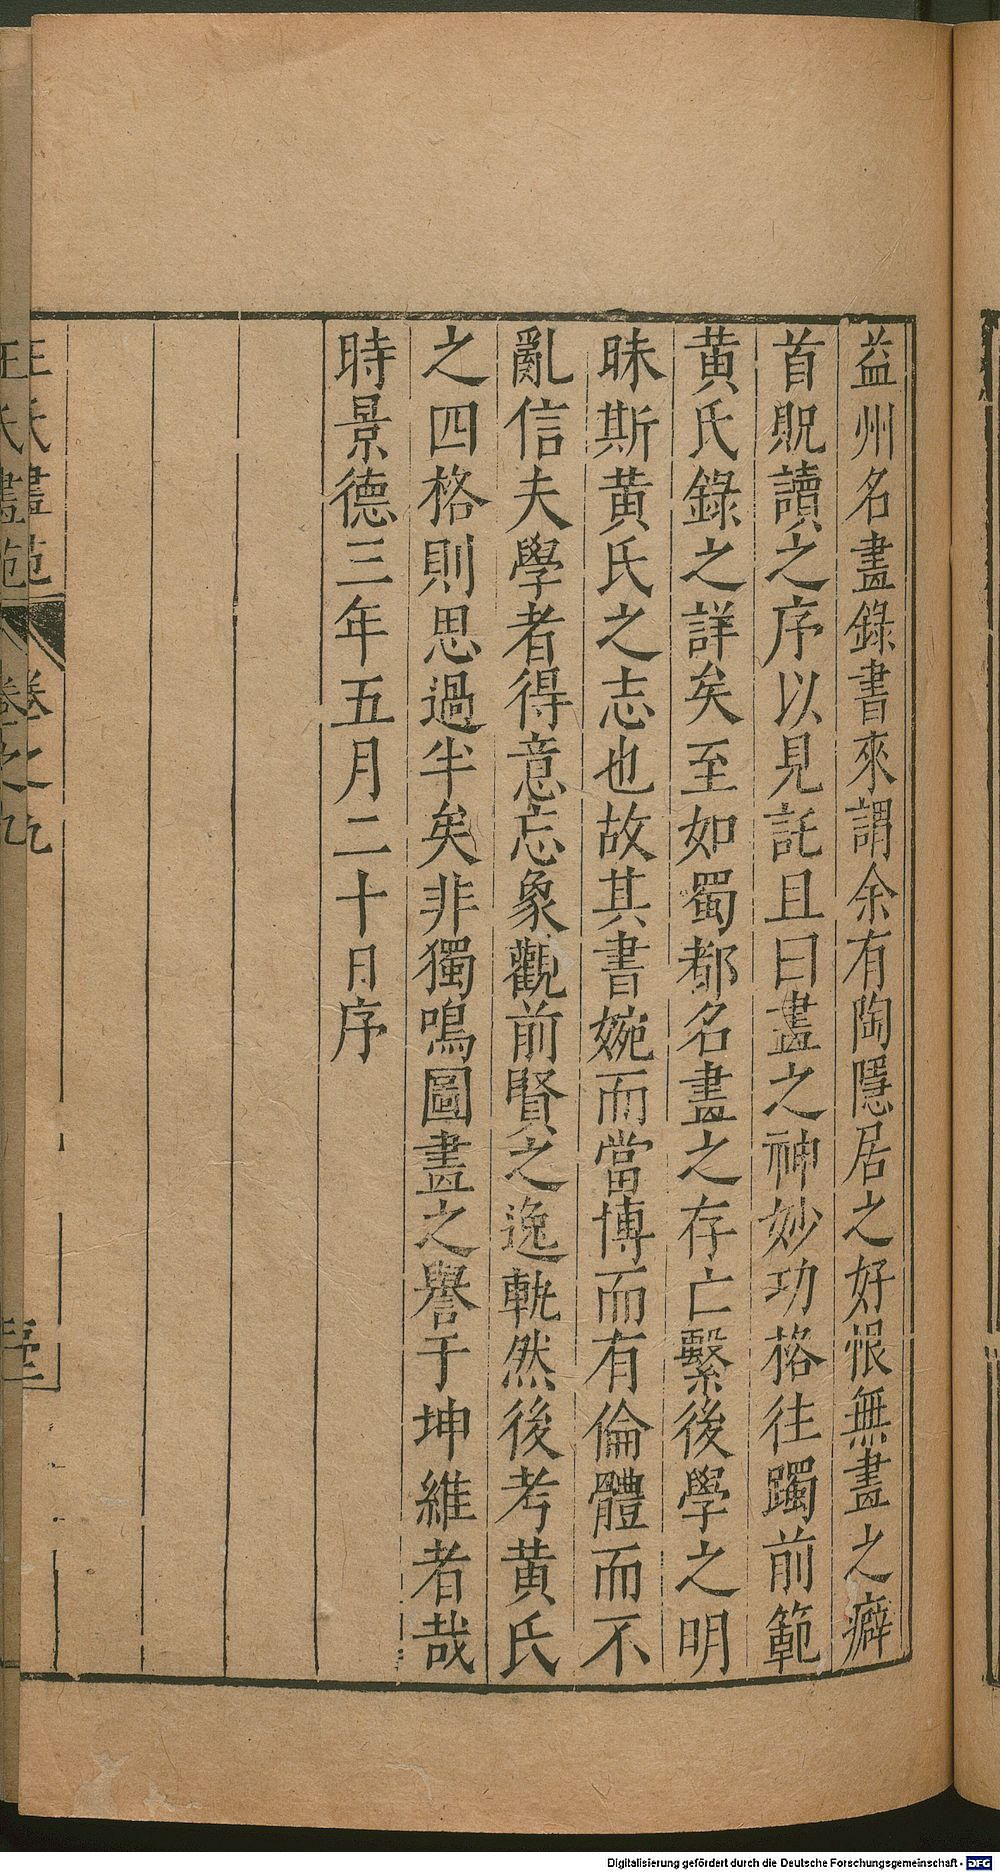 益州名畫錄書來謂余有陶隱居之好恨無畫之癖
首貺讀之序以見託且曰畫之神妙功格往躅前範
黃氏錄之詳矣至如蜀都名畫之存亡繫後學之明
昧斯黃氏之志也故其書婉而當博而有倫體而不
亂信夫學者得意忘象觀前賢之逸軌然後考黃氏
之四格則思過半矣非獨鳴圖畫之譽于坤維者哉
時景德三年五月二十日序
王氏畫苑 卷之九
Digitalisierung gefördert durch die Deutsche Forschungsgemeinschaft - DFG